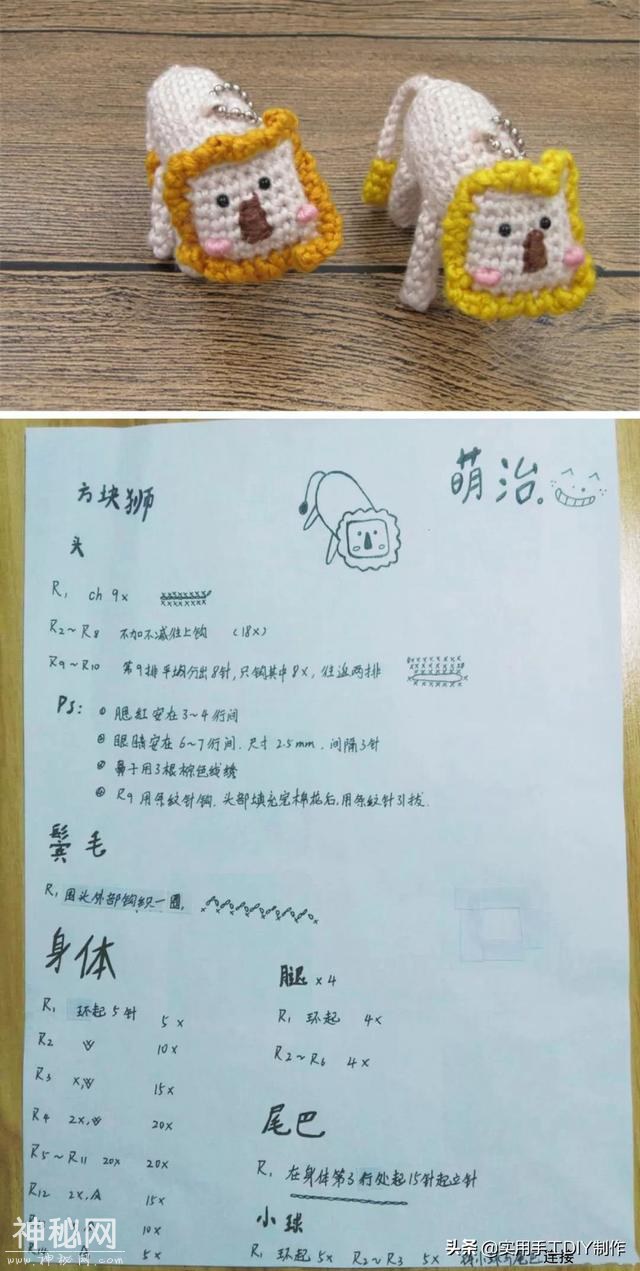 方块狮
萌治.
头
R1 ch 9x
R2~R8 不加不减往上钩 (18x)
R9~R10 第9排平均分出8针,只钩其中8x,往返两排
Ps:
① 腮红安在3~4行间
② 眼睛安在6~7行间.尺寸2.5mm.间隔3针
③ 鼻子用3根棕色线绣
④ R9用条纹针钩.头部填充完棉花后,用条纹针引拔.
鬃毛
R1 围头外部钩织一圈.
身体
R1 环起5针 5x
R2 10x
R3 x, 15x
R4 2x, 20x
R5~R11 20x 20x
R12 2x,A 15x
10x
R14 A 5x
腿x4
R1 环起 4x
R2~R6 4x
尾巴
R1 在身体第3行处起15针起立针
小球
R1 环起5x R2~R3 5x 将小球与尾巴连接
神秘网
www.shenmiw.com
头条 @实用手工DIY制作